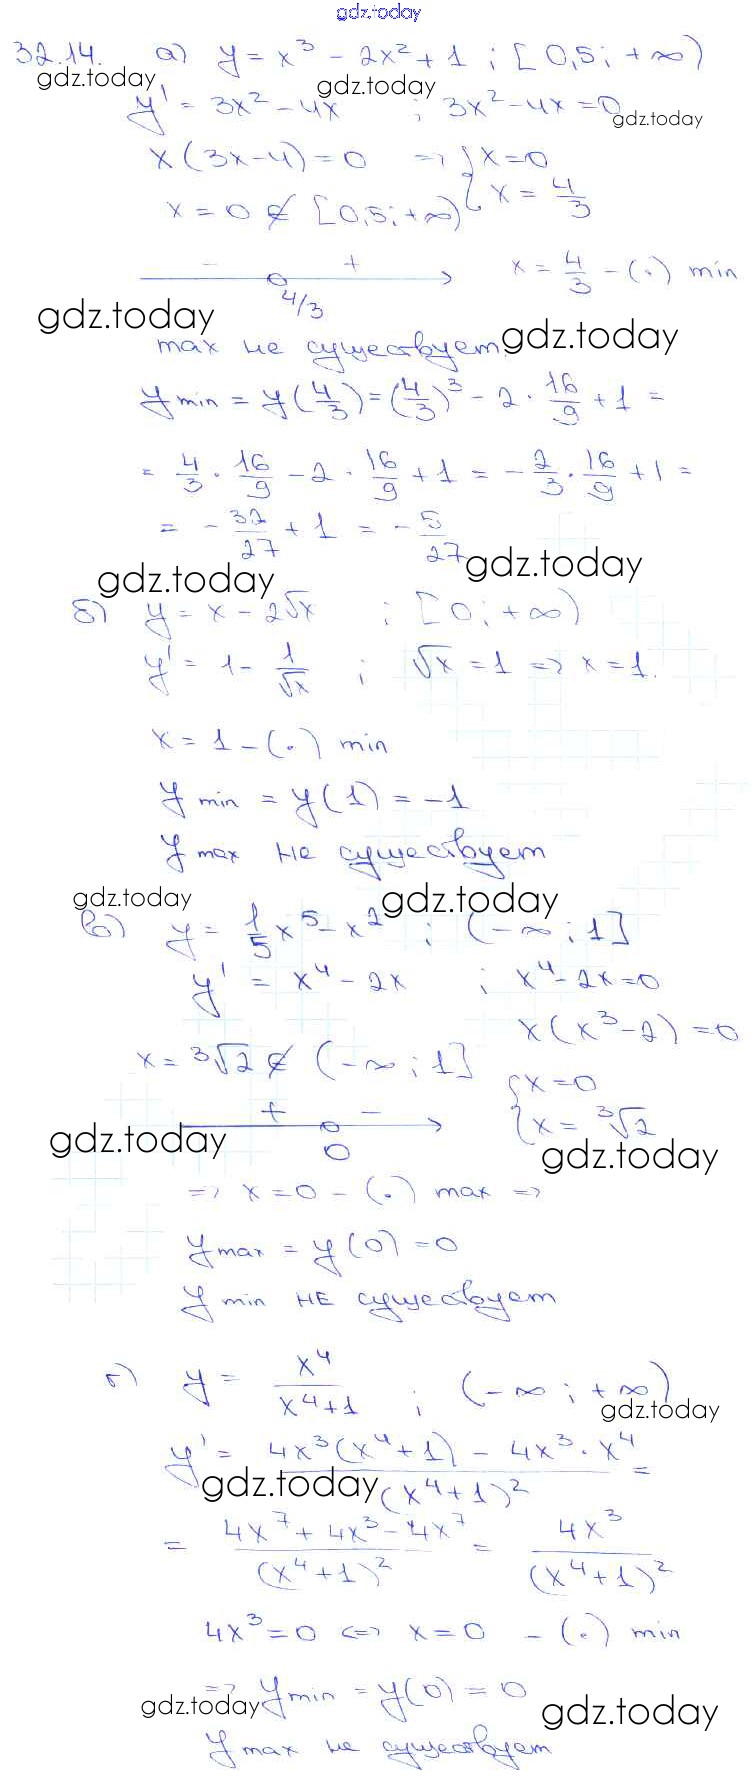 gdz.today
32.14. а) y = x³ - 2x² + 1 ; [0,5; +∞)
gdz.today gdz.today
y' = 3x² - 4x ; 3x² - 4x = 0
gdz.today
x(3x-4) = 0 => { x = 0
{ x = 4/3
x = 0 ∉ [0,5; +∞)
- +
4/3
x = 4/3 - (.) min
gdz.today gdz.today
max не существует.
y min = y(4/3) = (4/3)³ - 2 · 16/9 + 1 =
= 4/3 · 16/9 - 2 · 16/9 + 1 = - 2/3 · 16/9 + 1 =
= - 32/27 + 1 = - 5/27
gdz.today gdz.today
б) y = x - 2√x ; [0; +∞)
y' = 1 - 1/√x ; √x = 1 => x = 1.
x = 1 - (.) min
y min = y(1) = -1
y max не существует
gdz.today gdz.today
в) y = 1/5 x⁵ - x² ; (-∞; 1]
y' = x⁴ - 2x ; x⁴ - 2x = 0
x(x³ - 2) = 0
x = ³√2 ∉ (-∞; 1]
{ x = 0
{ x = ³√2
+ -
0
gdz.today gdz.today
=> x = 0 - (.) max =>
y max = y(0) = 0
y min не существует
г) y = x⁴/(x⁴+1) ; (-∞; +∞)
gdz.today
y' = (4x³(x⁴+1) - 4x³ · x⁴)/(x⁴+1)² =
gdz.today
= (4x⁷ + 4x³ - 4x⁷)/(x⁴+1)² = 4x³/(x⁴+1)²
4x³ = 0 <=> x = 0 - (.) min
=> y min = y(0) = 0
gdz.today gdz.today
y max не существует